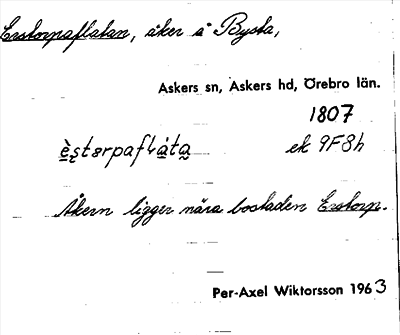 Erstorpaflatan, åker å Bysta,
Askers sn, Askers hd, Örebro län.
1807
èstorpaflåta ek 9F8h
Åkern ligger nära bostaden Erstorp.
Per-Axel Wiktorsson 1963